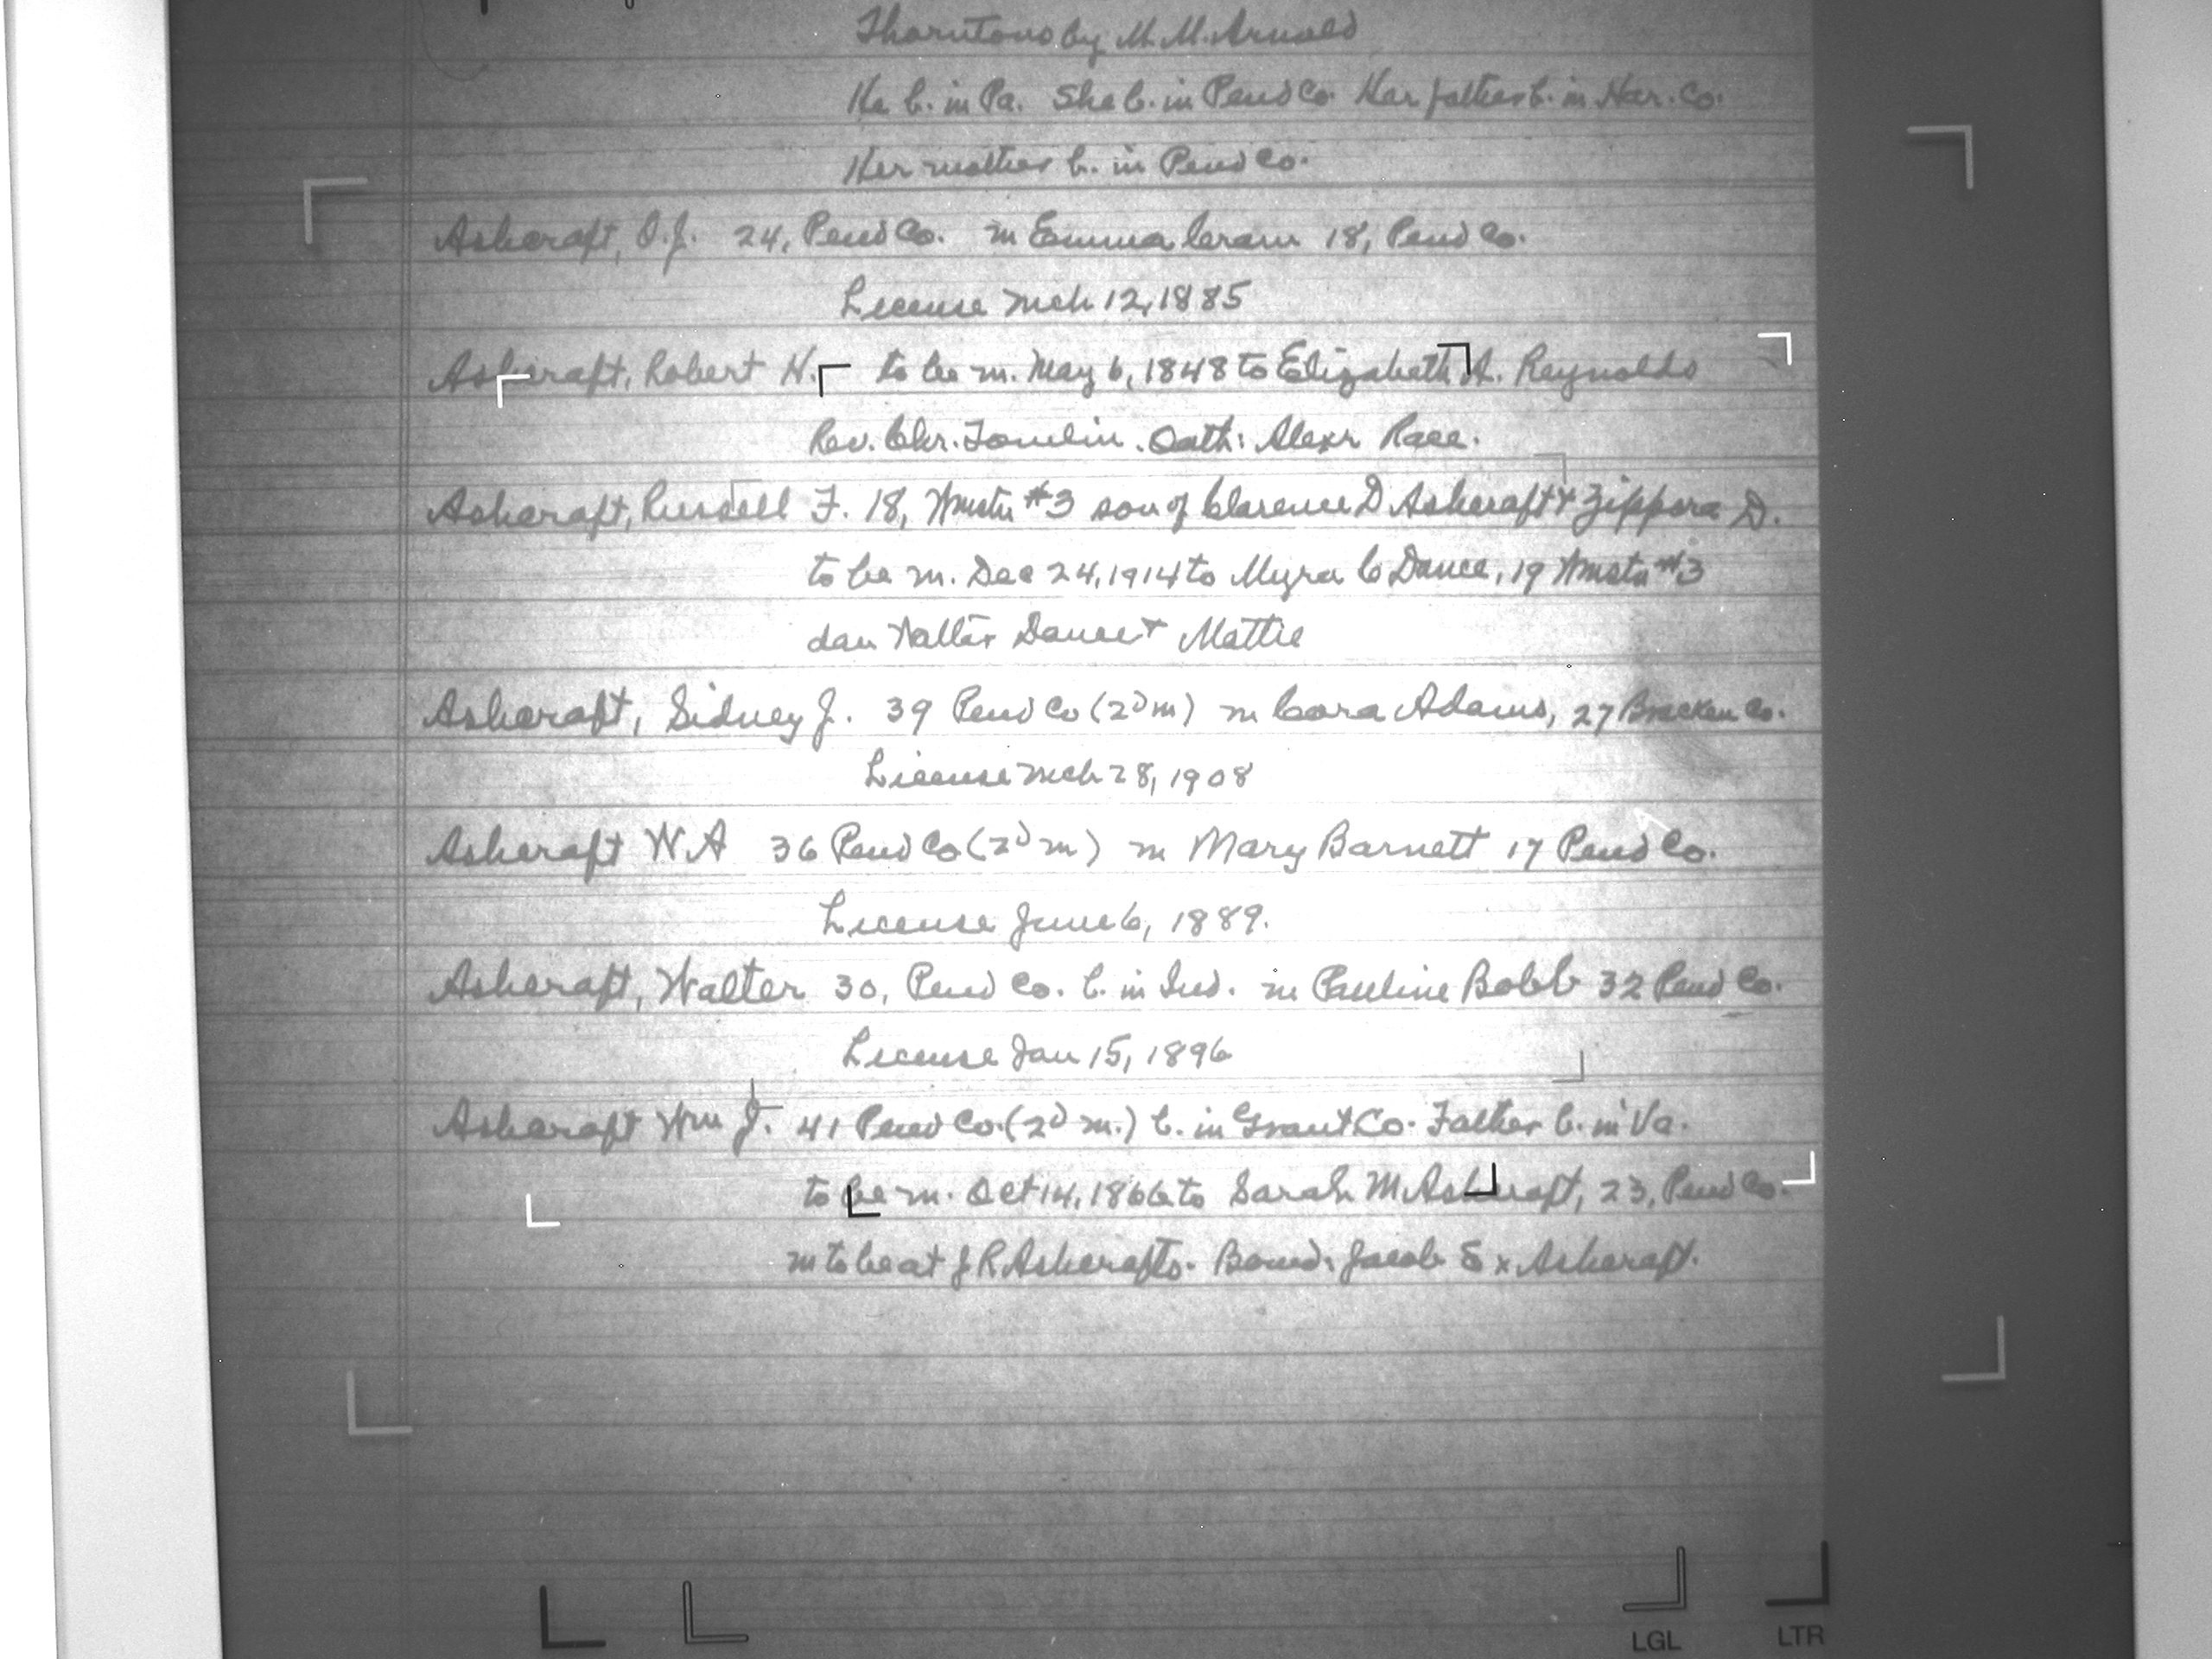 Thorntons by M.M. Arnold
He b. in Pa. She b. in Pend Co. Her father b. in Har. Co.
Her mother b. in Pend Co.
Ashcraft, O.J. 24, Pend Co. m Emma Cram 18, Pend Co.
License Mch 12, 1885
Ashcraft, Robert H. to be m. May 6, 1848 to Elizabeth A. Reynolds
Rev. Chr. Tomlin. Oath: Alexr Race.
Ashcraft, Russell F. 18, Wmstn #3 son of Clarence D Ashcraft + Zippora D.
to be m. Dec 24, 1914 to Myra C Dance, 19 Wmstn #3
dau Walter Dance + Mattie
Ashcraft, Sidney J. 39 Pend Co (2d m) m Cora Adams, 27 Bracken Co.
License Mch 28, 1908
Ashcraft W.A 36 Pend Co (2d m) m Mary Barnett 17 Pend Co.
License June 6, 1889.
Ashcraft, Walter 30, Pend Co. b. in Ind. m Pauline Bobb 32 Pend Co.
License Jan 15, 1896
Ashcraft Wm J. 41 Pend Co. (2d m.) b. in Grant Co. Father b. in Va.
to be m. Oct 14, 1866 to Sarah M Ashcraft, 23, Pend Co.
m to be at J R Ashcrafts. Bond: Jacob S x Ashcraft.
LGL LTR